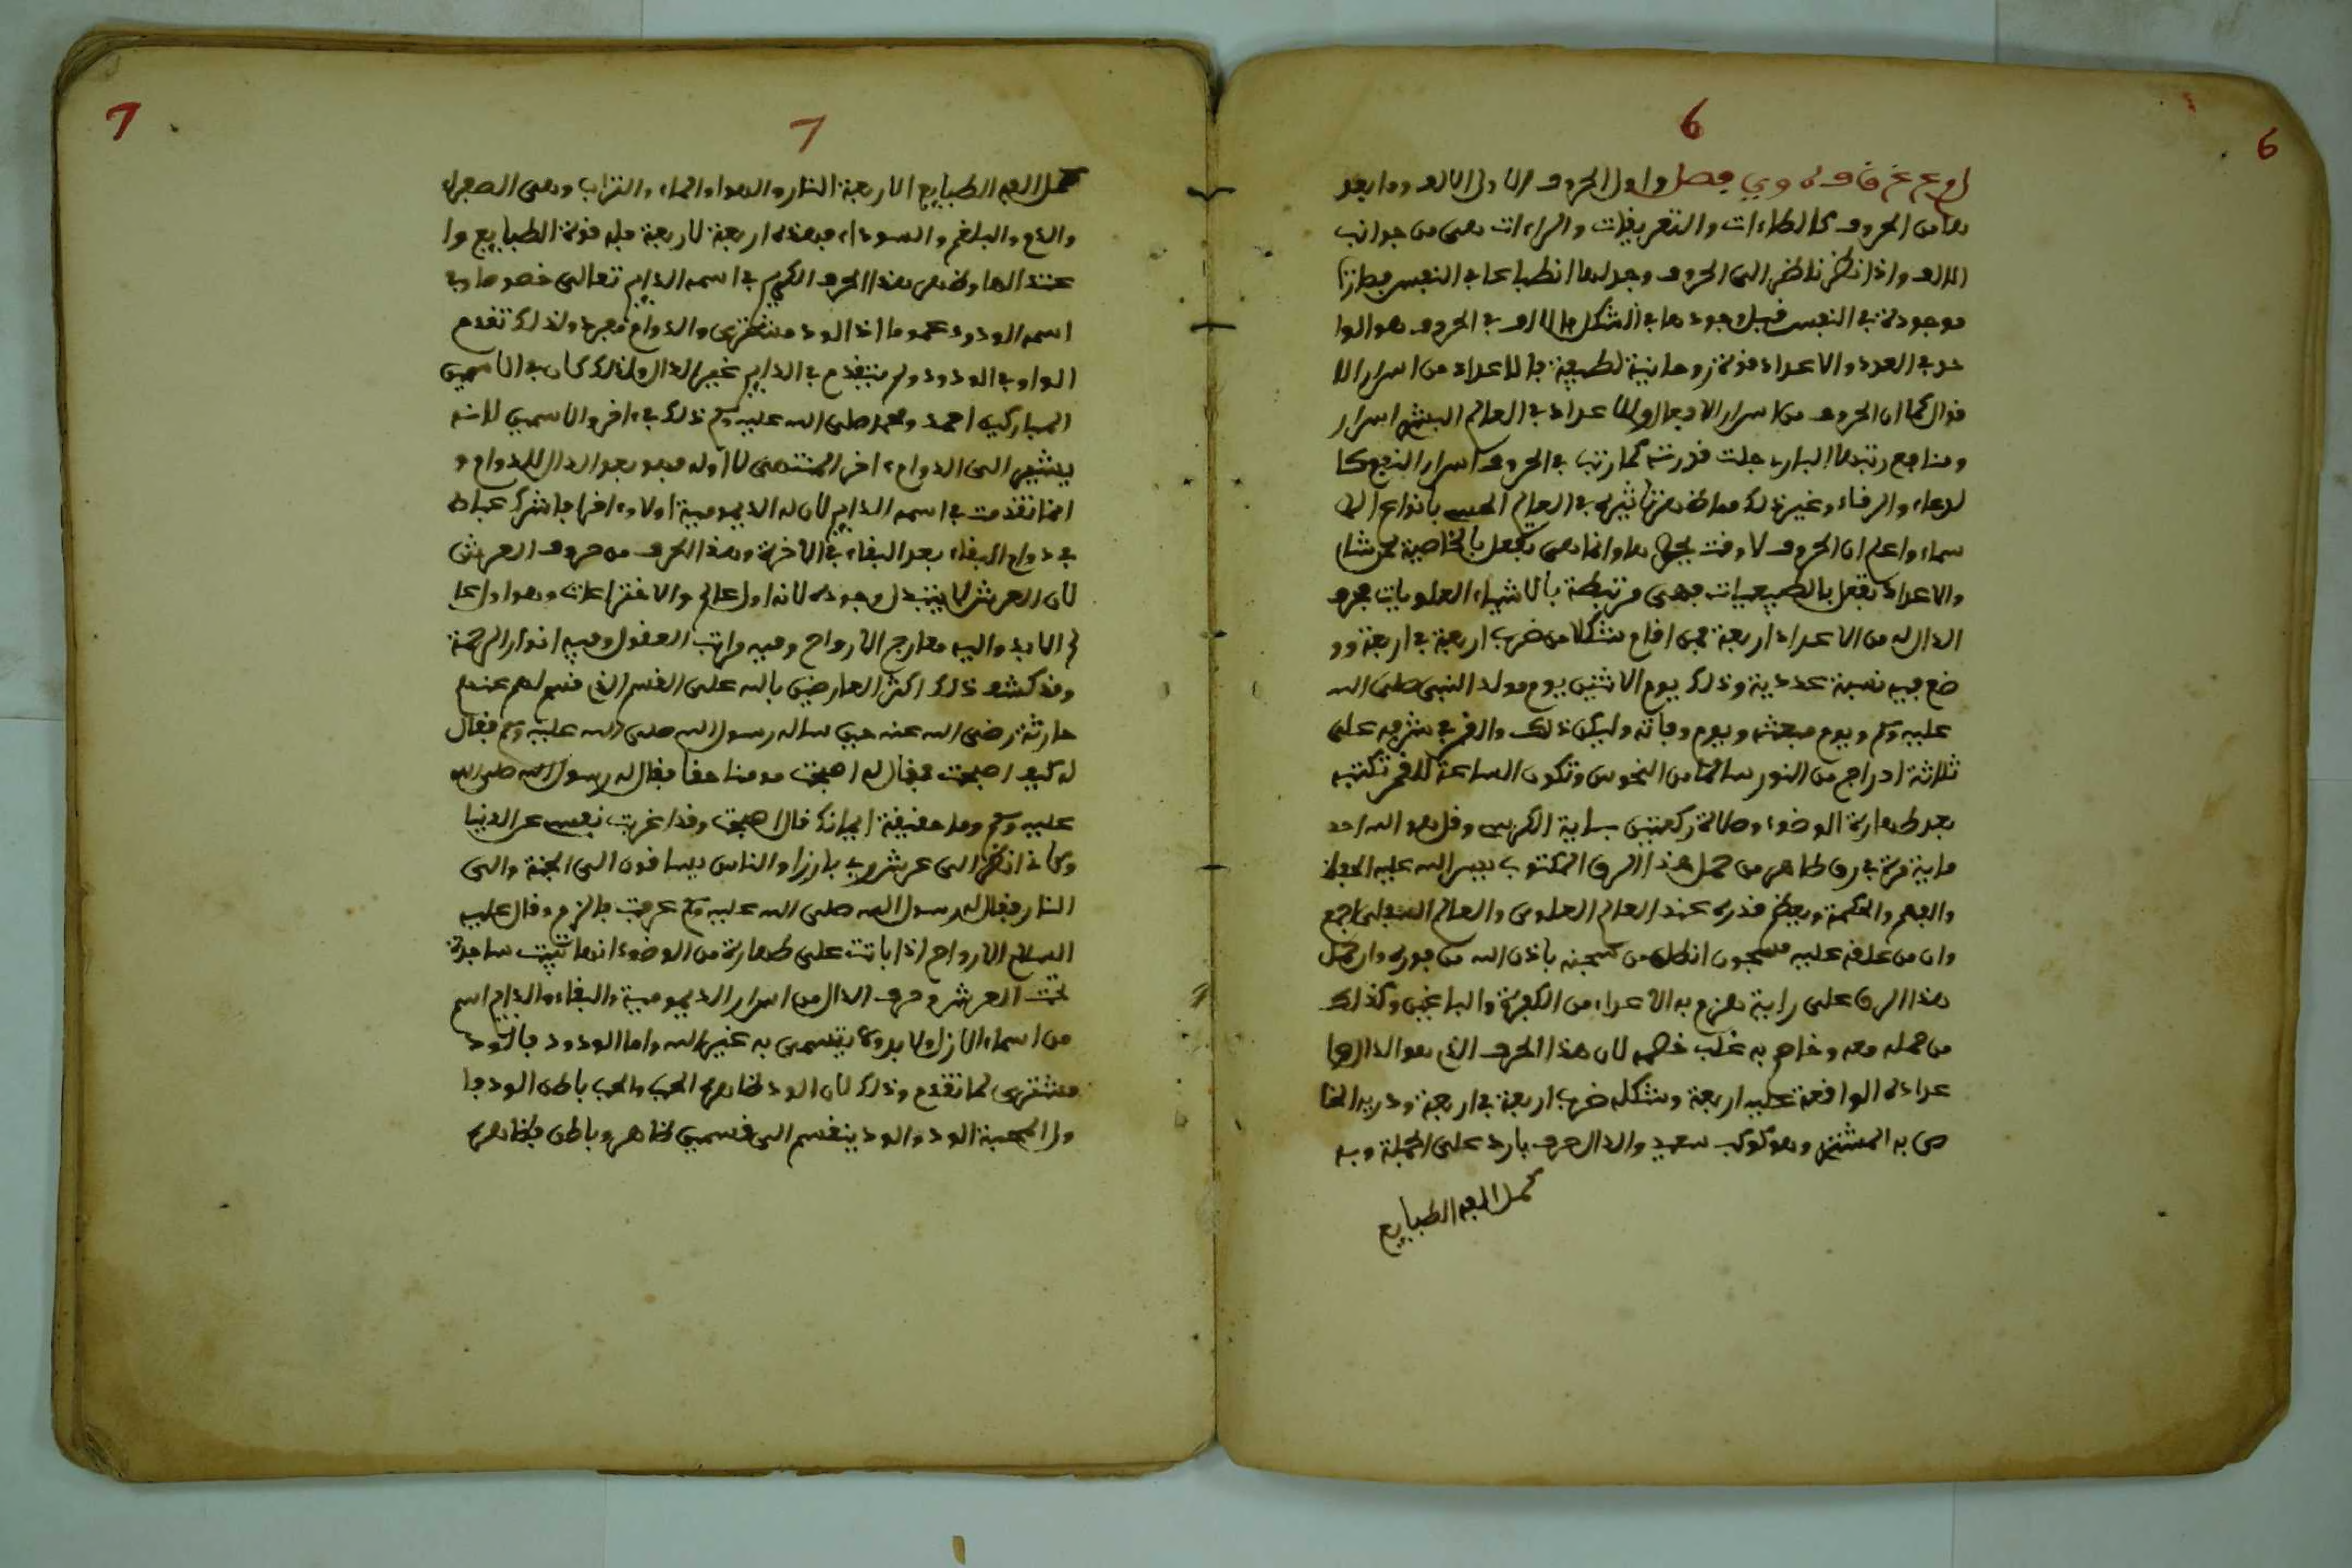 6
6
وي فصل واول الحروف الاولى الالف وما بعد
ها من الحروف كالطاءات والتعريفات والراءات هى من جوانب
الالف واذا نظر ناظر الى الحروف وجد لها انطباعا في النفس
موجودة في النفس قبل وجودها في الشكل فالالف في الحروف هو الوا
حد في العدد والاعداد قوة روحانية لطيفة فالاعداد من اسرار الا
قوال كما ان الحروف من اسرار الافعال وللاعداد في العالم البشر اسرار
ومنافع رتبها البارى جلت قدرته كما رتب في الحروف اسرار النفع كا
لدعاء والرقاء وغير ذلك مما ظهر تاثيره في العالم الحسى بانواع الا
سماء واعلم ان الحروف لا وقت يحصرها وانما هى تفعل بالخاصية
والاعداد تفعل بالطبيعيات فهى مرتبطة بالاشياء العلويات فحرف
الدال له من الاعداد اربعة فمن اقام شكلا من ضرب اربعة في اربعة وو
ضع فيه نسبة عددية وذلك يوم الاثنين يوم مولد النبى صلى الله
عليه وسلم ويوم مبعثه ويوم وفاته وليكن ذلك والقمر في شرفه على
ثلاثة ادراج من الثور سالما من النحوس وتكون الساعة للقمر تكتبه
بعد طهارة الوضوء وصلاة ركعتين باية الكرسى وقل هو الله احد
ماية مرة في رق طاهر من حمل هذا الرق المكتوب يسر الله عليه الحفظ
والفهم والحكمة ويعظم قدره عند العالم العلوى والعالم السفلى اجمع
وان من علقه عليه مسجون انطلق من سجنه باذن الله من فوره وان حمل
هذا الرق على راية هزم به الاعداء من الكفرة والباغين وكذلك
من حمله معه وخاصم به غلب خصمه لان هذا الحرف الذى هو الدال
عداده الواقعة عليه اربعة وشكله ضرب اربعة في اربعة
ص به المشترى وهو كوكب سعيد والدال حرف بارد على الجملة وبه
كمل الفه الطبايع
7
7
كمل الفه الطبايع الاربعة النار والهوا والماء والتراب وهى الصفراء
والدم والبلغم والسوداء فهذه اربعة لاربعة فله قوة الطبايع وا
هذا الحرف الكريم في اسمه الدايم تعالى خصوصا وفي
اسمه الودود عموما اذ الود مشترى والدوام مجرد ولذلك تقدم
الواو في الودود ولم يتقدم في الدايم غير الدال ولذلك كان في الاسمين
المباركين احمد ومحمد صلى الله عليه وسلم ذلك في ءاخر الاسمين لانه
يشير الى الدوام ءاخر المنتهى لا اوله فهو بعد الدال للدوام و
انما تقدمت في اسمه الدايم لان له الديمومية اولا وءاخرا
في دوام البقاء بعد البقاء في الاخرة وهذا الحرف من حروف العرش
لان العرش لا يتبدل وجوده لانه اول عالم الاختراعات وهو اول عا
لم الابد واليه معارج الارواح وفيه مراتب العقول وفيه انوار الرحمة
وقد كشف ذلك اكثر العارفين بالله على القسم الذى قسم لهم عندهم
حارثة رضى الله عنه حين ساله رسول الله صلى الله عليه وسلم فقال
له كيف اصبحت فقال له اصبحت مومنا حقا فقال له رسول الله صلى الله
عليه وسلم وما حقيقة ايمانك قال اصبحت وقد اعزبت نفسى عن الدنيا
وكانى انظر الى عرش ربى بارزا والناس يساقون الى الجنة والى
النار فقال له رسول الله صلى الله عليه وسلم عرفت فالزم وقال عليه
السلام الارواح اذا باتت على طهارة من الوضوء انها تبيت ساجدة
تحت العرش وحرف الدال من اسرار الديمومية والبقاء والدايم اسم
من اسماء الازل والابد ولا يتسمى به غير الله واما الودود فالود
مشترى كما تقدم وذلك لان الود ظاهره الحب والحب باطن الود
ول المحبة الود والود ينقسم الى قسمين ظاهر وباطن فظاهره